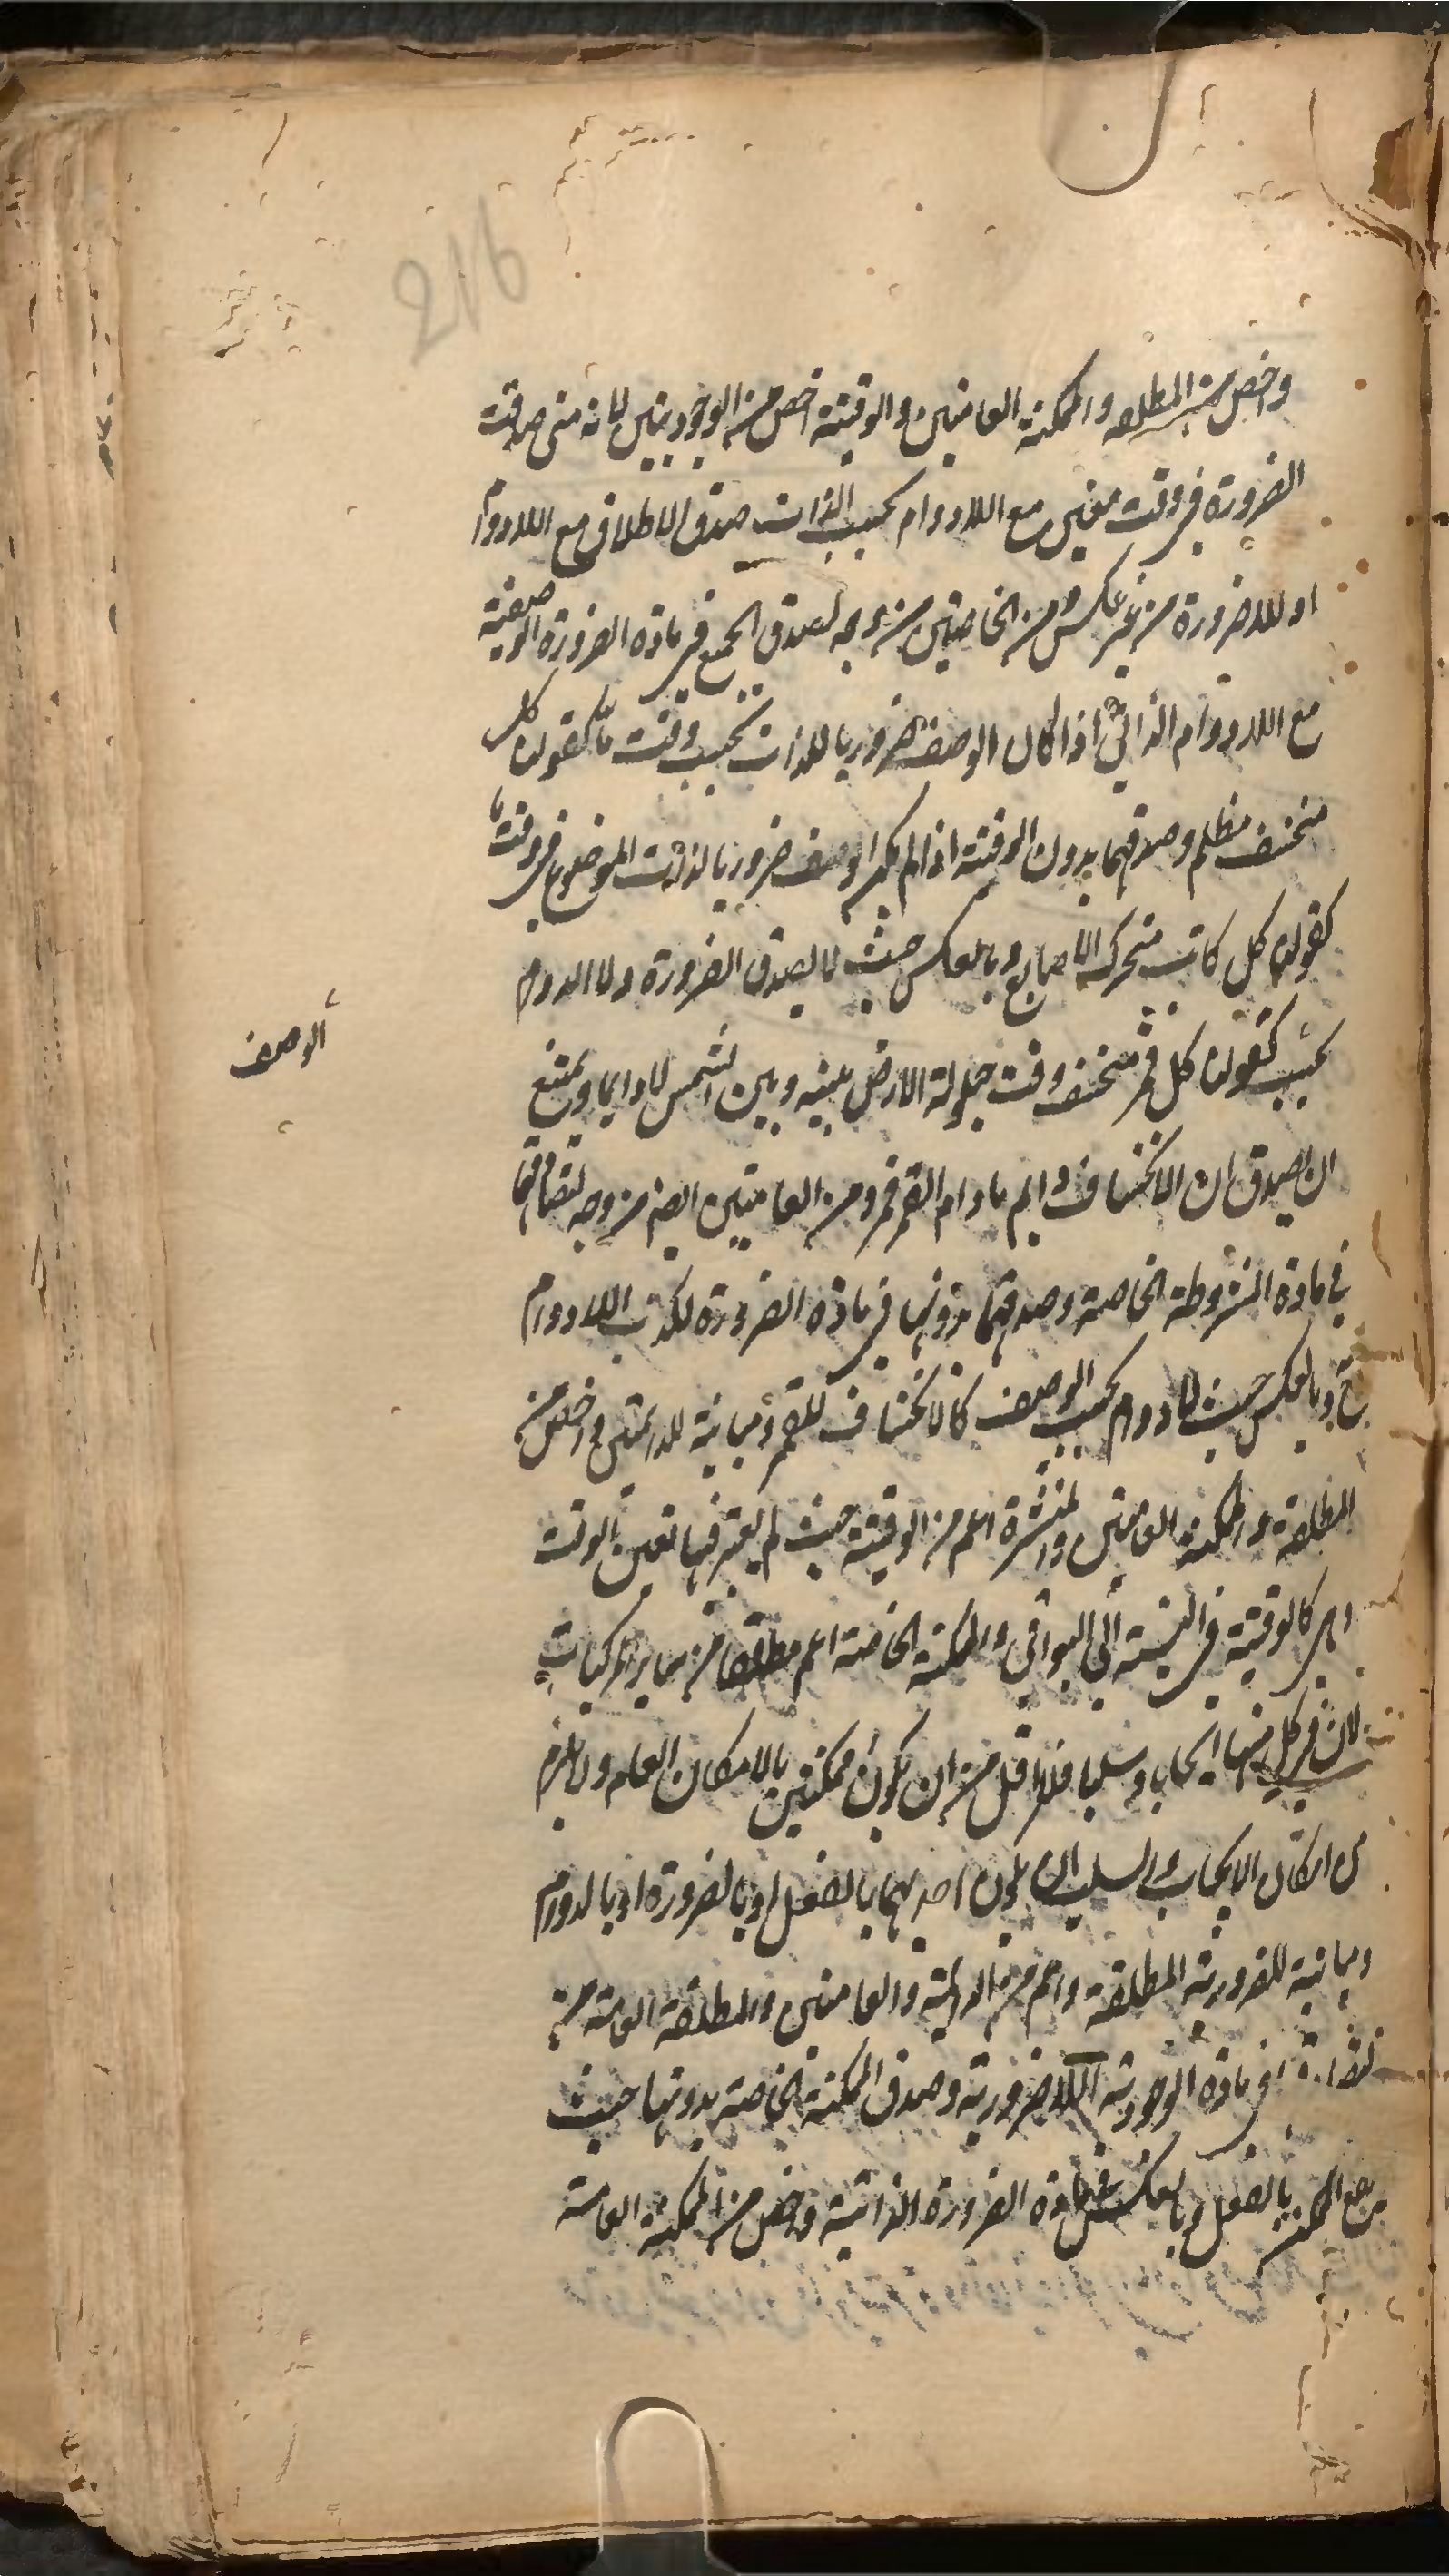 216
واخص من المطلقه والممكنة العامتين والوقتية اخص من الوجوديتين لانه متى صدقت
الضرورة فى وقت معين مع اللادوام بحسب الذات صدق الاطلاق مع اللادوام
او اللاضرورة من غير عكس ومن الخاصتين من وجه لصدق الجميع فى مادة الضرورة الوصفية
مع اللادوام الذاتى اذا كان الوصف ضروريا للذات بحسب وقت ما كقولنا كل
منخسف مظلم وصدقهما بدون الوقتية اذا لم يكن الوصف ضروريا لذات الموضوع فى وقت ما
كقولنا كل كاتب متحرك الاصابع وبالعكس حيث لا يصدق الضرورة ولا الدوام
بحسب كقولنا كل قمر منخسف وقت حيلولة الارض بينه وبين الشمس لا دايما ويمتنع
الوصف
ان يصدق ان الانخساف دايم مادام القمر قمر ومن العامتين ايضا من وجه لتصادقها
فى مادة المشروطة الخاصة وصدقهما بدونها فى مادة الضرورة لكذب اللادوام
ح وبالعكس حيث لا دوام بحسب الوصف كالانخساف للقمر ومباينة للدائمتين واخص من
المطلقة والممكنة العامتين والمنتشرة اعم من الوقتية حيث لم يعتبر فيها تعين الوقت
وهى كالوقتية فى النسبة الى البواقى والممكنة الخاصة اعم مطلقا من ساير المركبات
لان فى كل منها ايجابا وسلبا فلا اقل من ان يكونا ممكنتين بالامكان العام ولا يلزم
من امكان الايجاب والسلب ان يكون احدهما بالفعل او بالضرورة او بالدوام
ومباينة للضرورية المطلقة واعم من الدائمة والعامتين والمطلقة العامة من
فى مادة الوجودية اللاضرورية وصدق الممكنة الخاصة بدونها حيث
الممكن بالفعل وبالعكس فى مادة الضرورة الذاتية واخص من الممكنة العامة